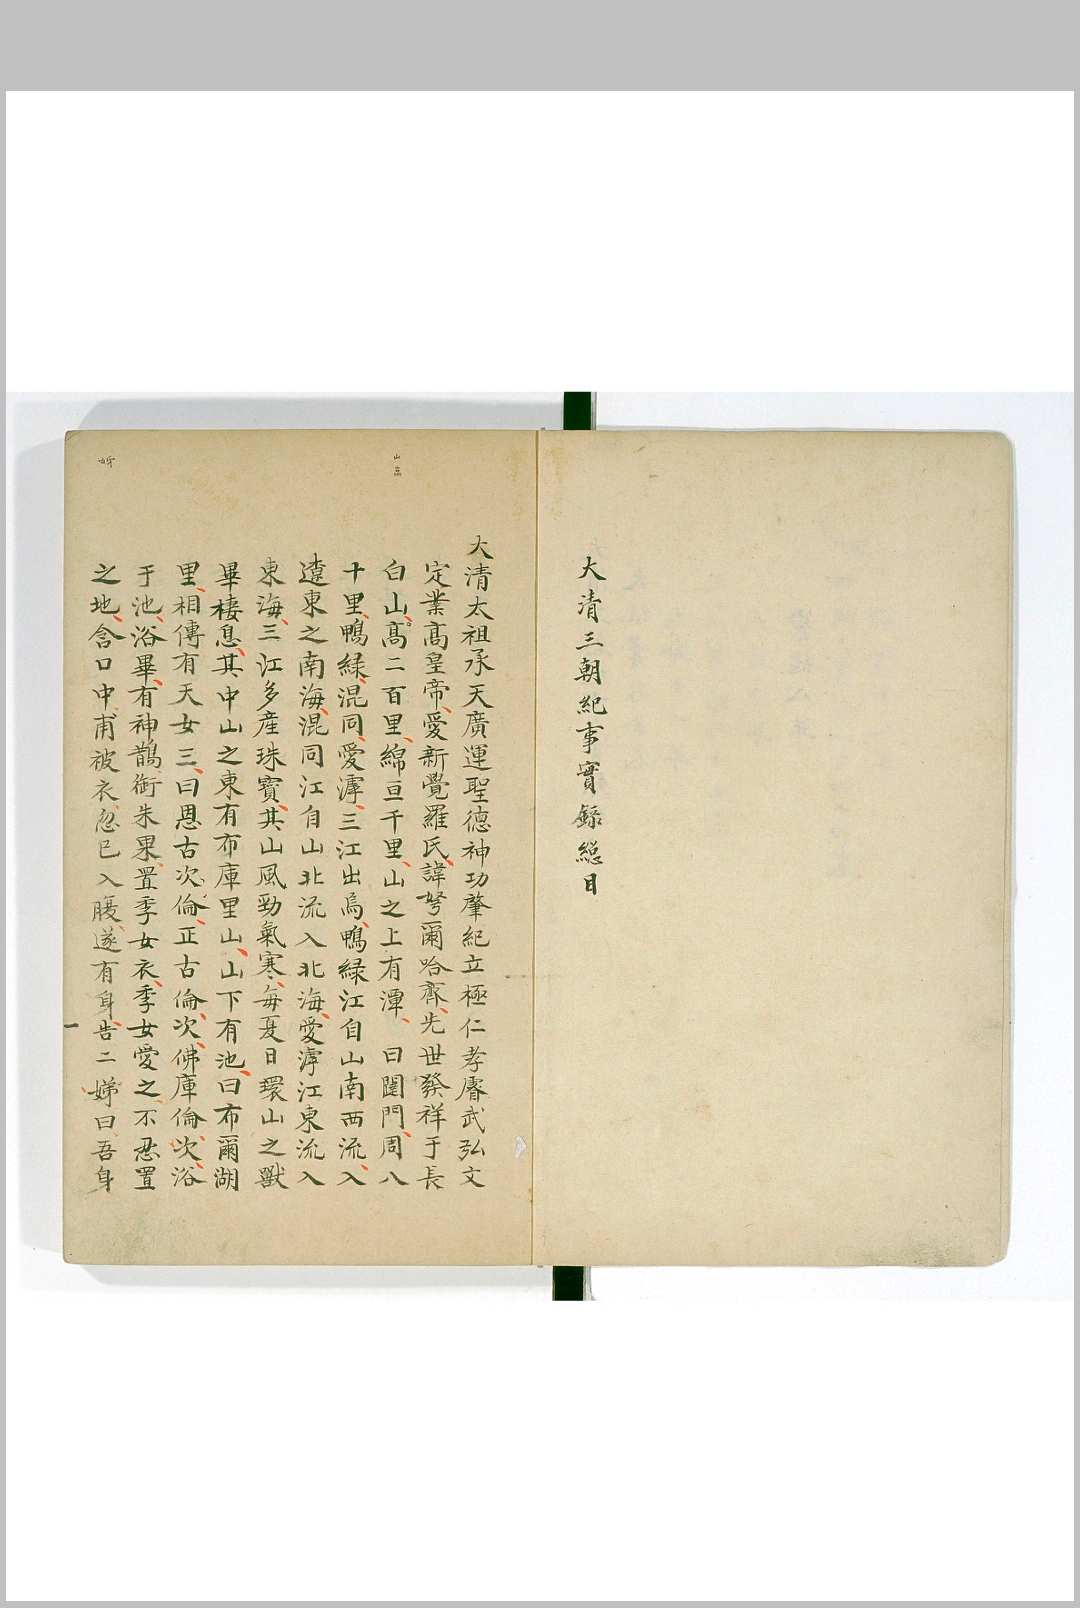 大清三朝紀事實錄總目
大清太祖承天廣運聖德神功肇紀立極仁孝睿武弘文
定業高皇帝愛新覺羅氏諱弩爾哈齊先世發祥于長
白山高二百里綿亘千里山之上有潭曰闥門周八
十里鴨綠混同愛滹三江出焉鴨綠江自山南西流入
遼東之南海混同江自山北流入北海愛滹江東流入
東海三江多產珠寶其山風勁氣寒每夏日環山之獸
畢棲息其中山之東有布庫里山山下有池曰布爾湖
里相傳有天女三曰恩古次倫正古倫次佛庫倫次浴
于池浴畢有神鵲銜朱果置季女衣季女愛之不忍置
之地含口中甫被衣忽已入腹遂有身告二娣曰吾身
山高